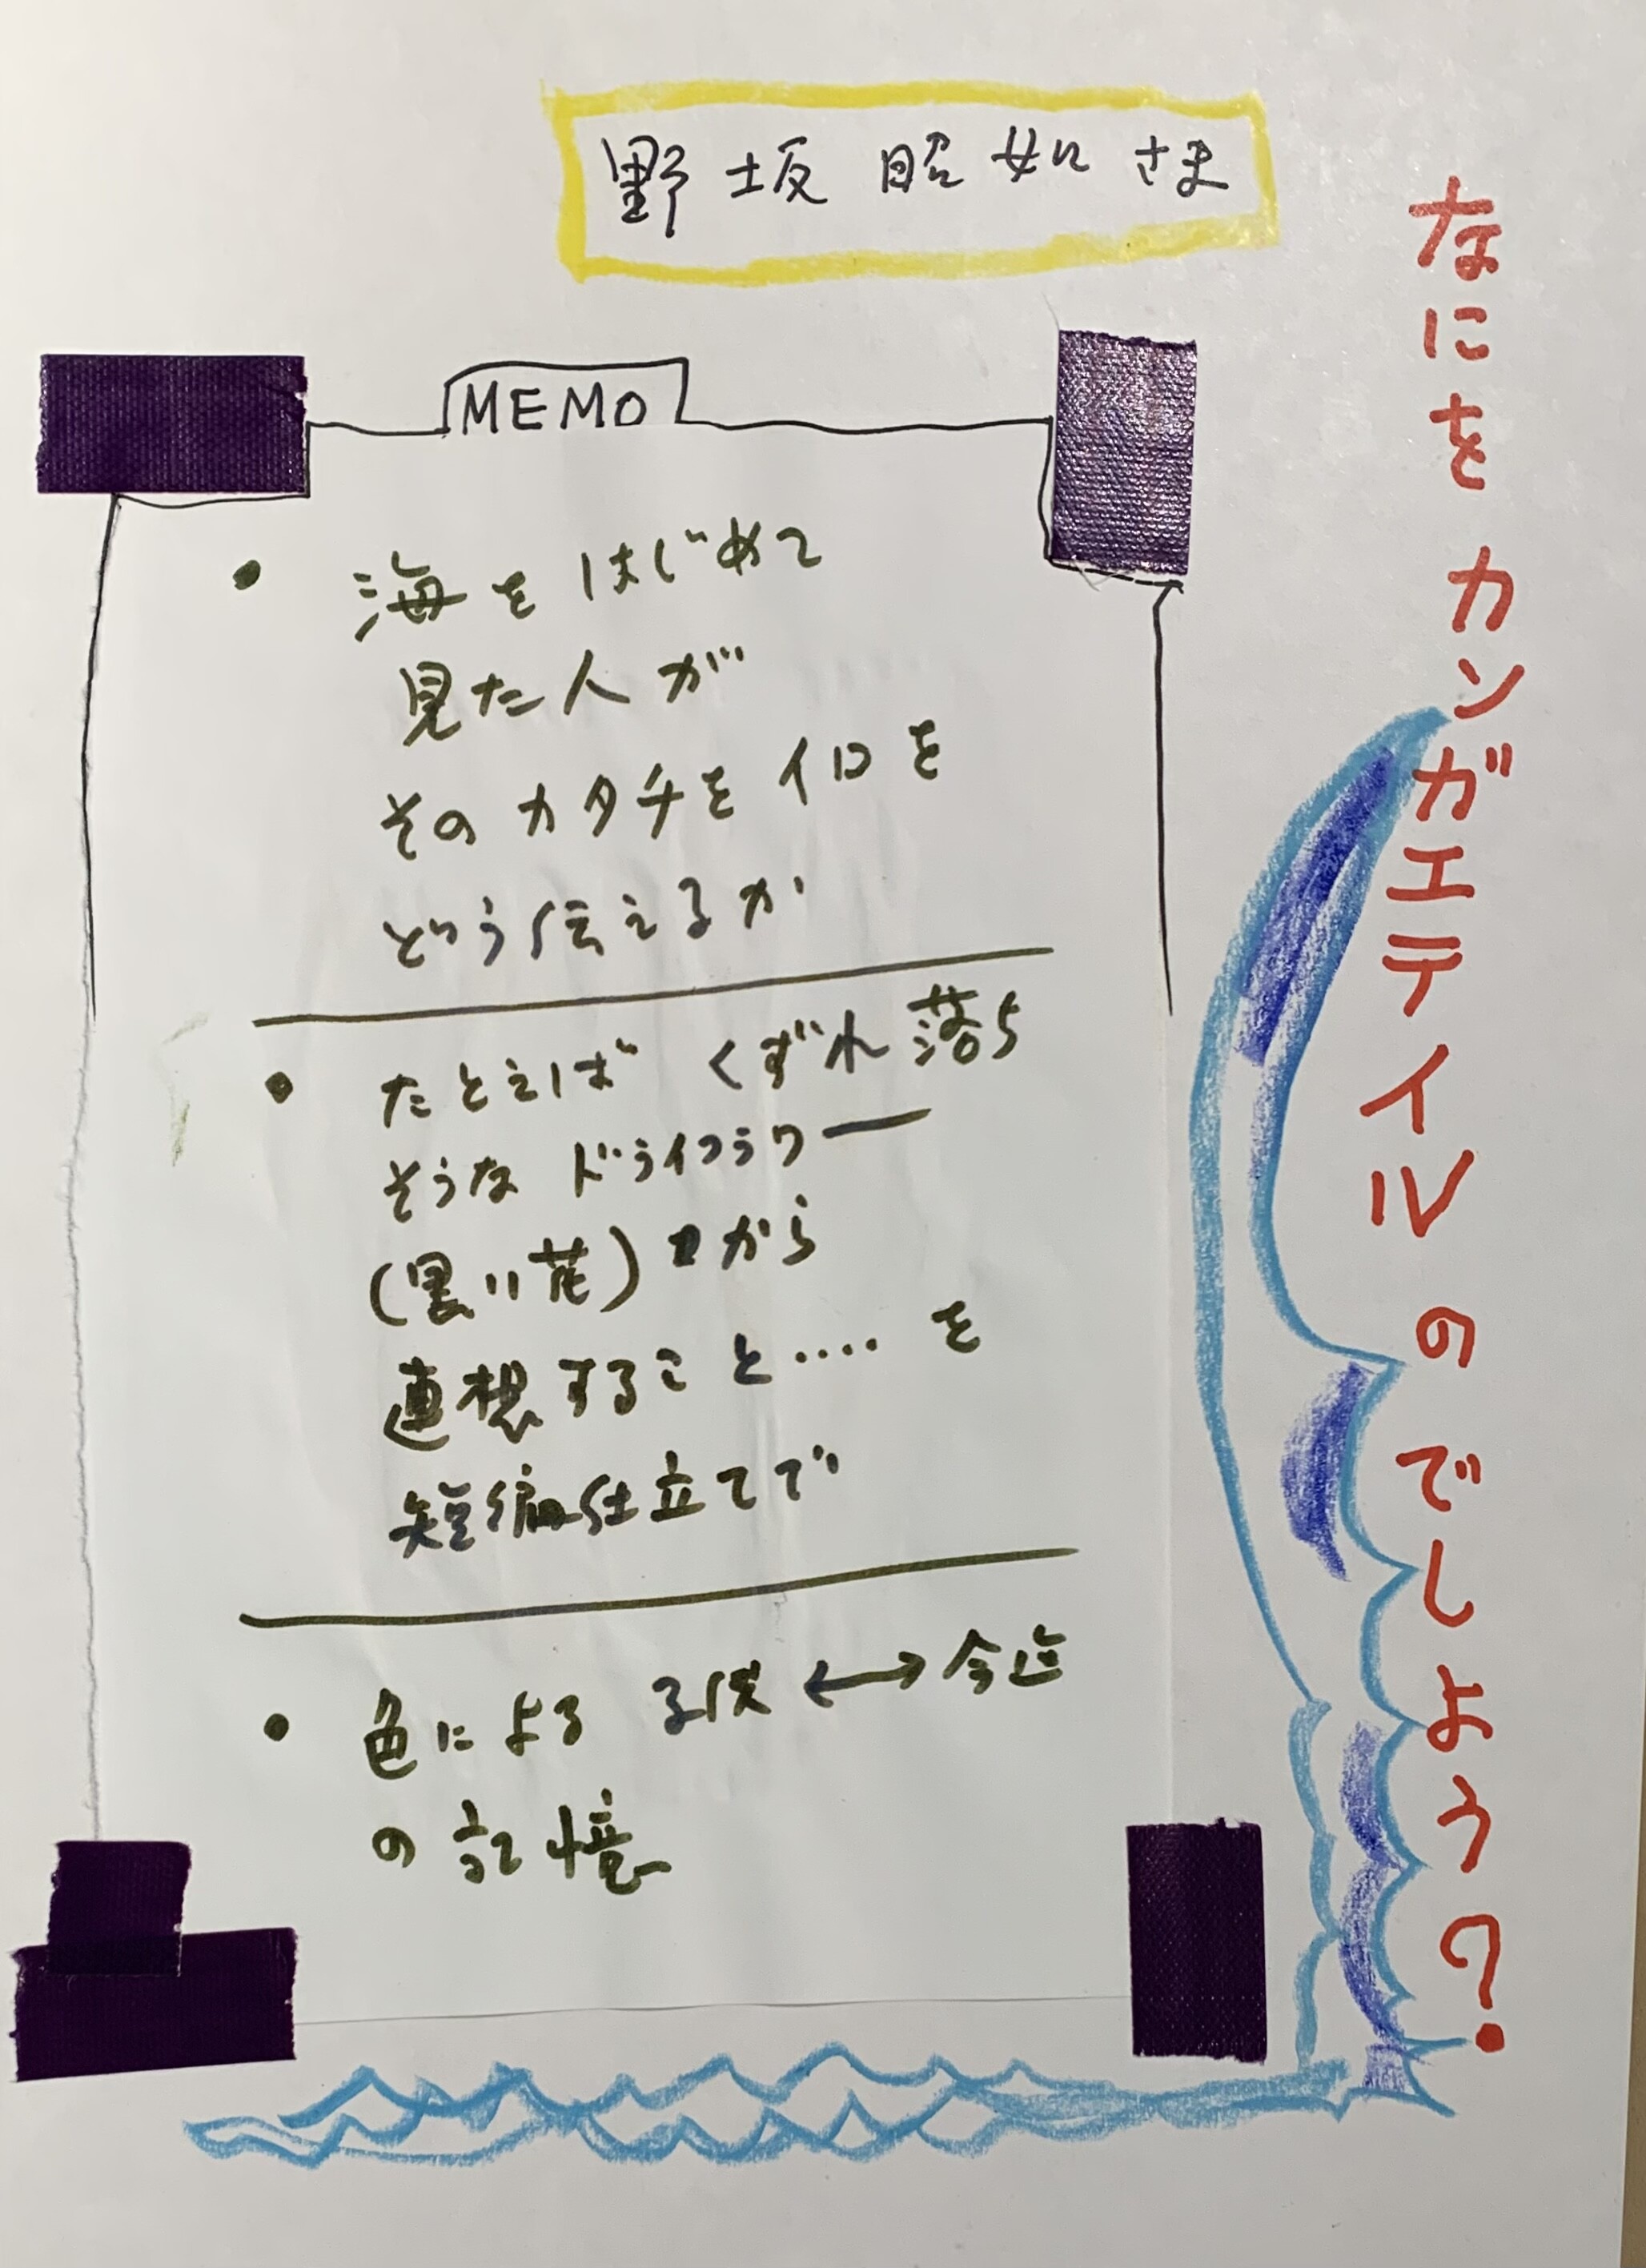 野坂昭如さま
なにをカンガエテイルのでしょう?
MEMO
• 海をはじめて
見た人が
そのカタチをイロを
どう伝えるか
• たとえば くずれ落ち
そうな ドライフラワー
(黒い花)から
連想すること‥‥を
短編仕立てで
• 色による ↔
の記憶